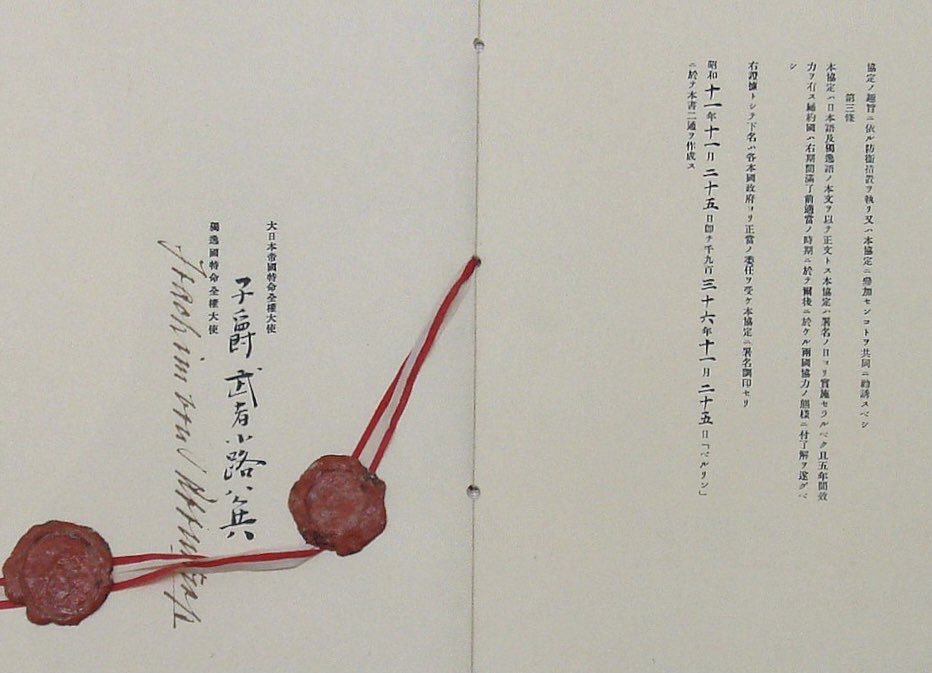 協定ノ趣旨ニ依ル防衛措置ヲ執リ又ハ本協定ニ參加センコトヲ共同ニ勸誘スベシ
第三條
本協定ハ日本語及獨逸語ノ本文ヲ以テ正文トス本協定ハ署名ノ日ヨリ實施セラルベク且五年間效
力ヲ有ス締約國ハ右期間滿了前適當ノ時期ニ於テ爾後ニ於ケル兩國協力ノ態樣ニ付了解ヲ遂グベ
シ
右證據トシテ下名ハ各本國政府ヨリ正當ノ委任ヲ受ケ本協定ニ署名調印セリ
昭和十一年十一月二十五日即チ千九百三十六年十一月二十五日「ベルリン」
ニ於テ本書二通ヲ作成ス
大日本帝國特命全權大使
子爵 武者小路公共
獨逸國特命全權大使
Joachim von Ribbentrop